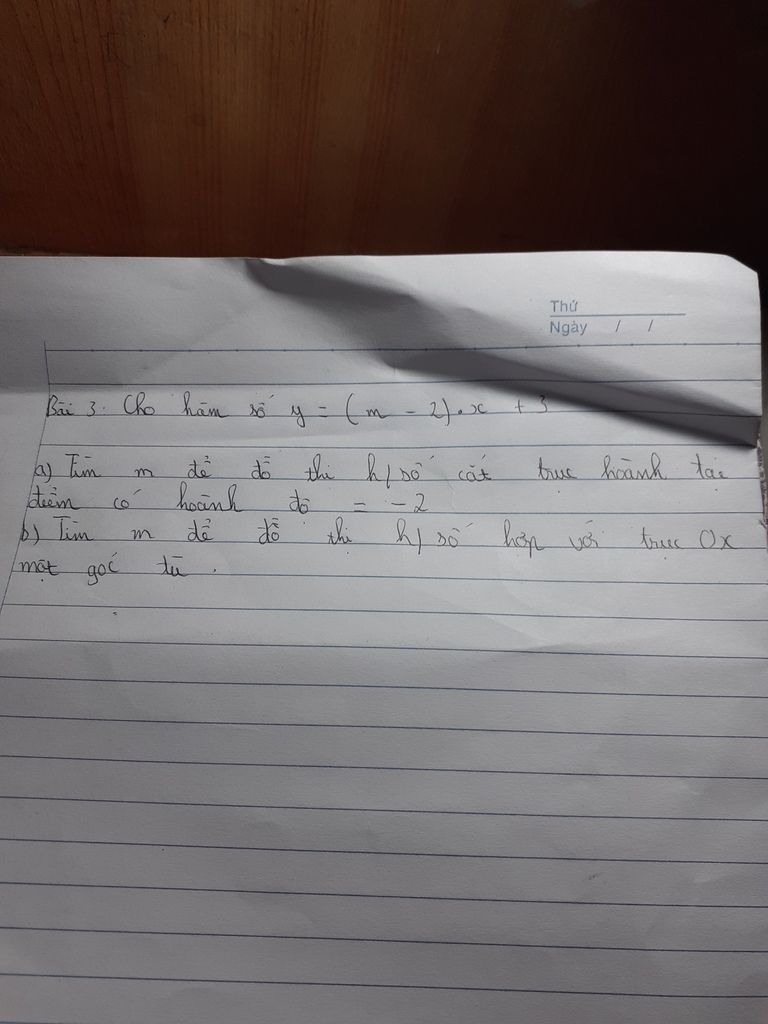 Thứ
Ngày / /
Bài 3. Cho hàm số y = (m - 2).x + 3
a) Tìm m để đồ thi h/số cắt trục hoành tại
điểm có hoành độ = -2
b) Tìm m để đồ thị h/số hợp với trục Ox
một góc tù.